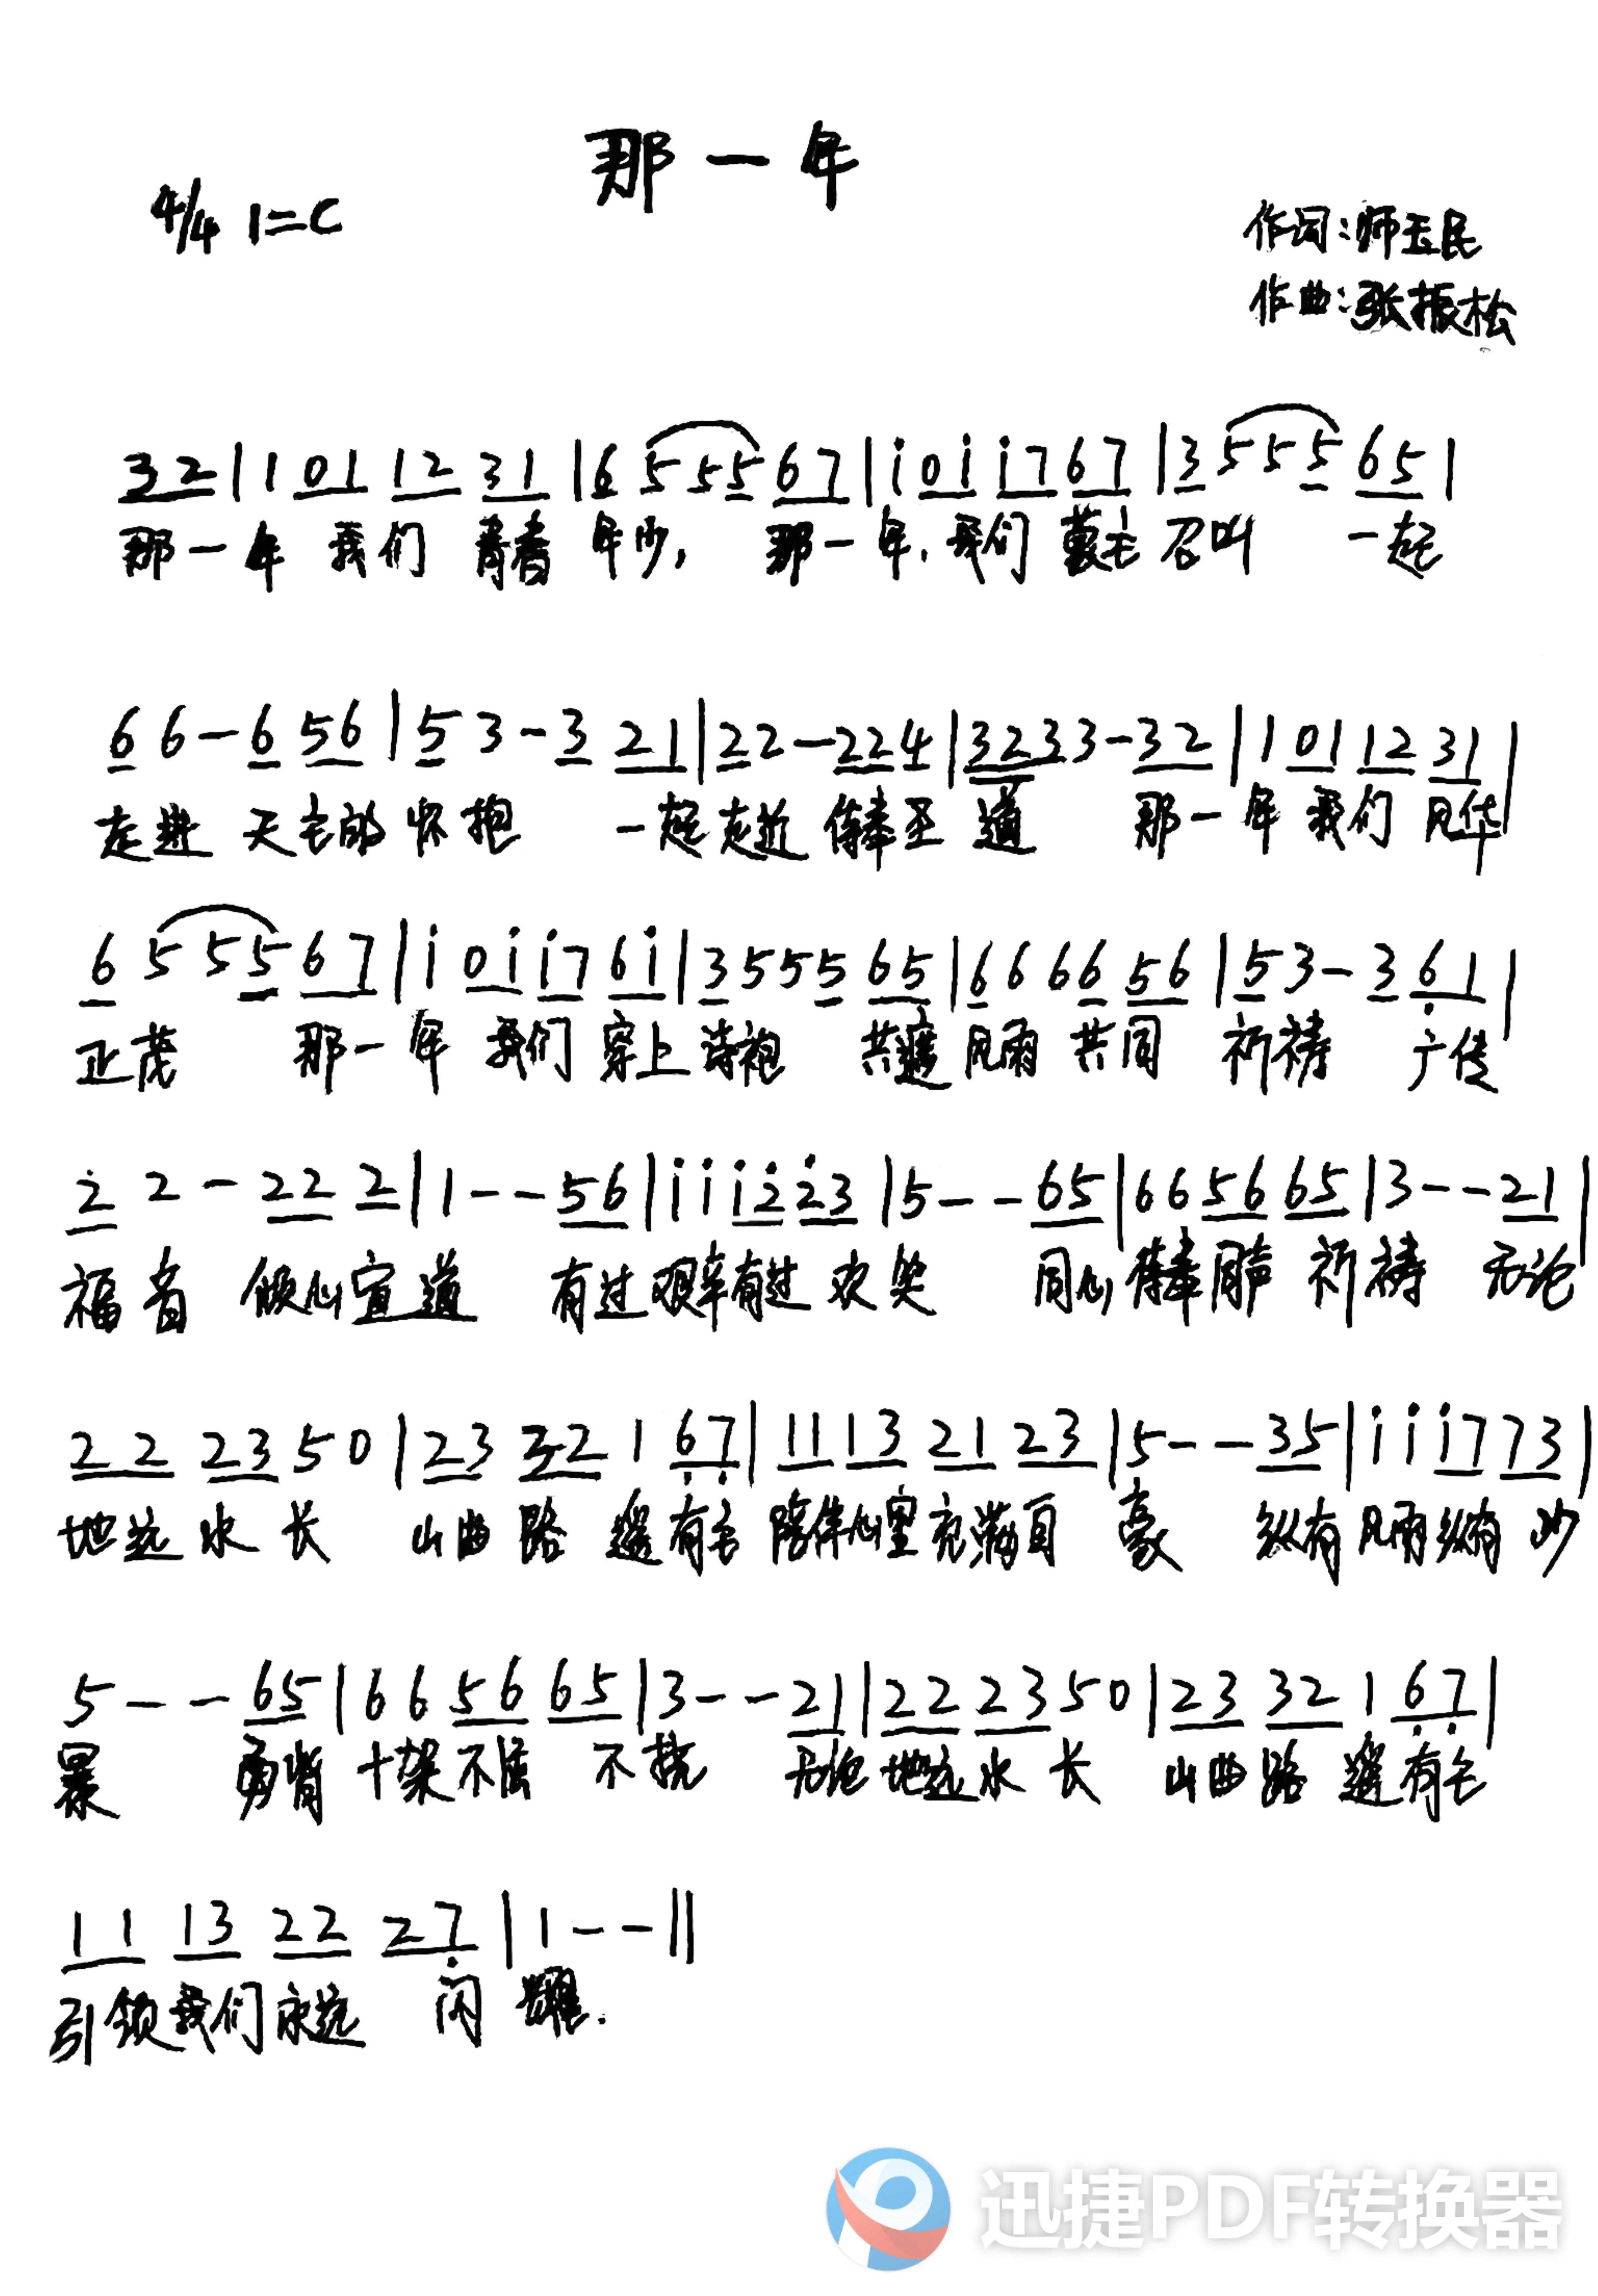 那一年
4/4 1=C
作词:师玉民
作曲:张振松
32|101 12 31|6 555 67|i0i i7 67|3 555 65|
那一年 我们 青春 年少, 那一年,我们 蒙主 召叫 一起
66-6 56|53-3 21|22-224|32333-32|101 12 31|
走进 天主的 怀抱 一起走近 侍奉圣 道 那一年 我们 风华
6 555 67|i0i i7 6i|3555 65|6666 56|53-3 61|
正茂 那一年 我们 穿上 诗袍 共趟 风雨 共同 祈祷 广传
2 2-22 2|1--56|i i i2 23|5--65|66 56 65|3--21|
福音 倾心宣道 有过艰辛有过 欢笑 同心 侍奉同声 祈祷 无论
22 23 50|23 32 1 67|11 13 21 23|5--35|i i i7 73|
地远水长 山曲路 遥有主 陪伴心里充满自 豪 纵有风雨纵有 沙
5--65|66 56 65|3--21|22 23 50|23 32 1 67|
暴 勇背 十架不屈 不挠 无论 地远水长 山曲路 遥有主
11 13 22 27|1--||
引领我们永远 闪 耀.
迅捷PDF转换器